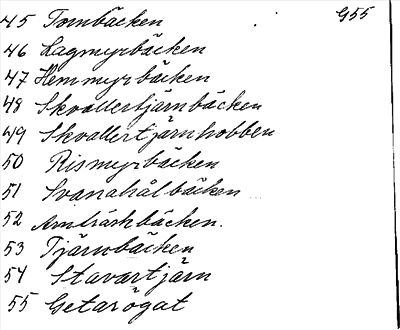 45 Tombäcken G55
46 Lagmyrbäcken
47 Hemmyrbäcken
48 Skvallertjärnbäcken
49 Skvallertjärnhobben
50 Rismyrbäcken
51 Svanahålbäcken
52 Arnträskbäcken.
53 Tjärnbäcken
54 Stavartjärn
55 Getarögat